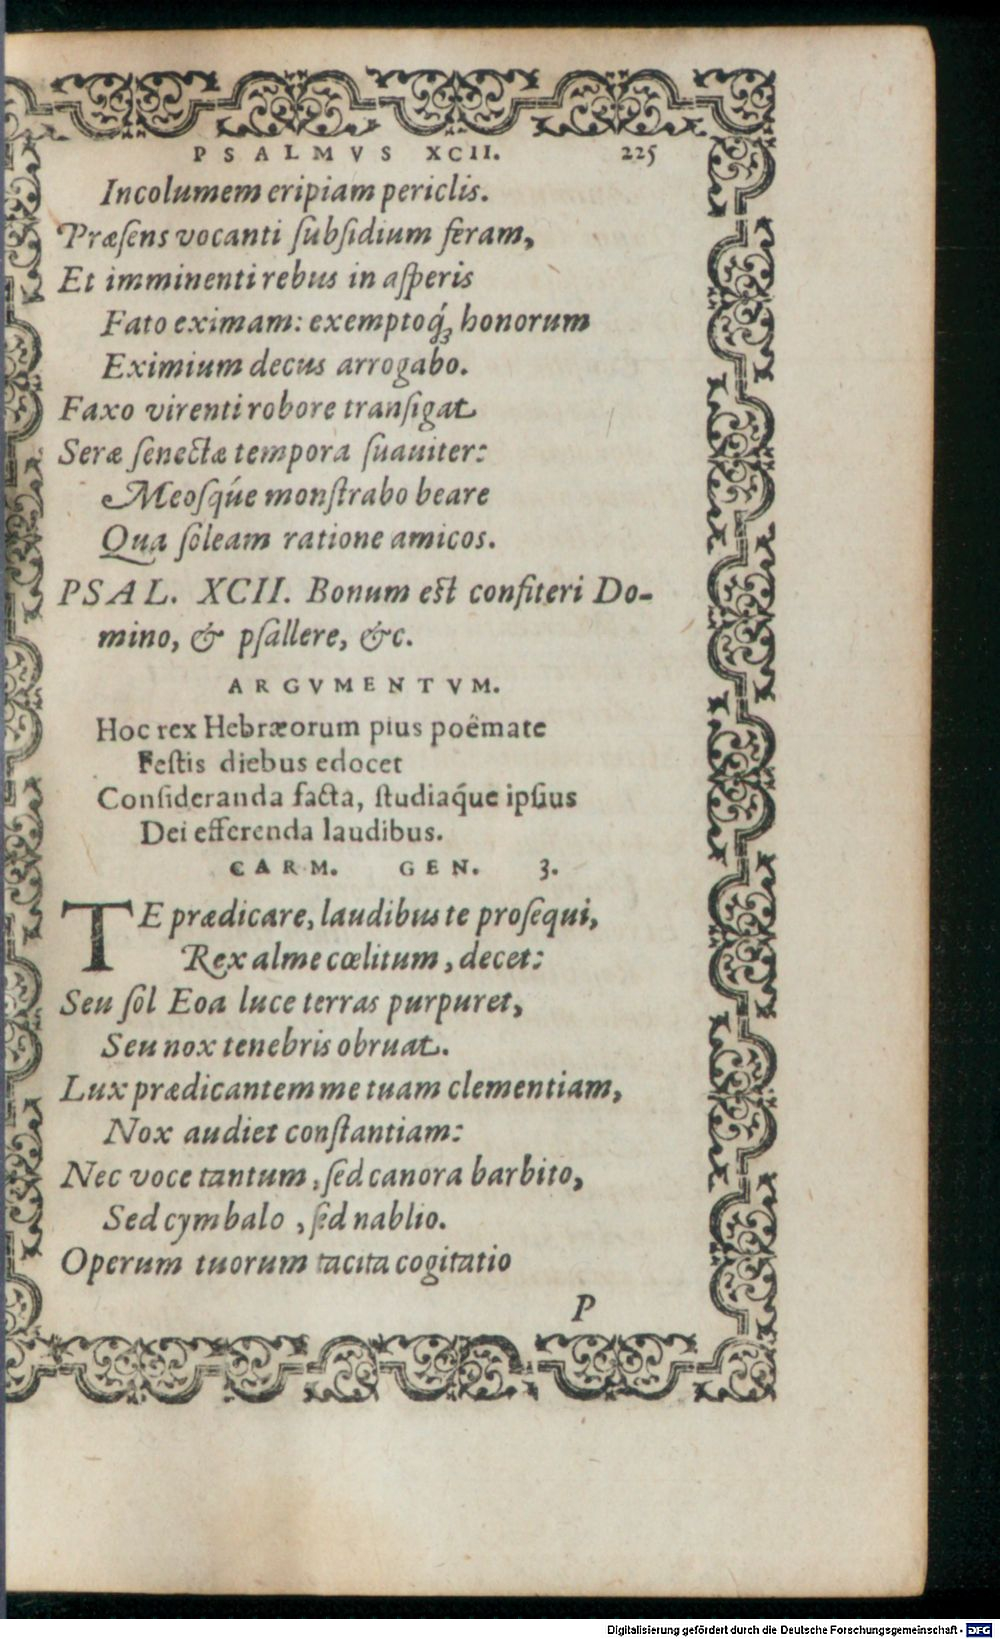 PSALMVS XCII. 225
Incolumem eripiam periclis.
Præsens vocanti ſubſidium feram,
Et imminenti rebus in aſperis
Fato eximam: exemptoq́ꝫ honorum
Eximium decus arrogabo.
Faxo virenti robore tranſigat
Seræ ſenectæ tempora ſuauiter:
Meoſq́ue monſtrabo beare
Qua ſoleam ratione amicos.
PSAL. XCII. Bonum est confiteri Do-
mino, & pſallere, &c.
ARGVMENTVM.
Hoc rex Hebræorum pius poêmate
Festis diebus edocet
Conſideranda facta, ſtudiaq́ue ipſius
Dei efferenda laudibus.
CARM. GEN. 3.
TE prædicare, laudibus te proſequi,
Rex alme cœlitum, decet:
Seu ſol Eoa luce terras purpuret,
Seu nox tenebris obruat.
Lux prædicantem me tuam clementiam,
Nox audiet conſtantiam:
Nec voce tantum, ſed canora barbito,
Sed cymbalo, ſed nablio.
Operum tuorum tacita cogitatio
P
Digitalisierung gefördert durch die Deutsche Forschungsgemeinschaft - DFG